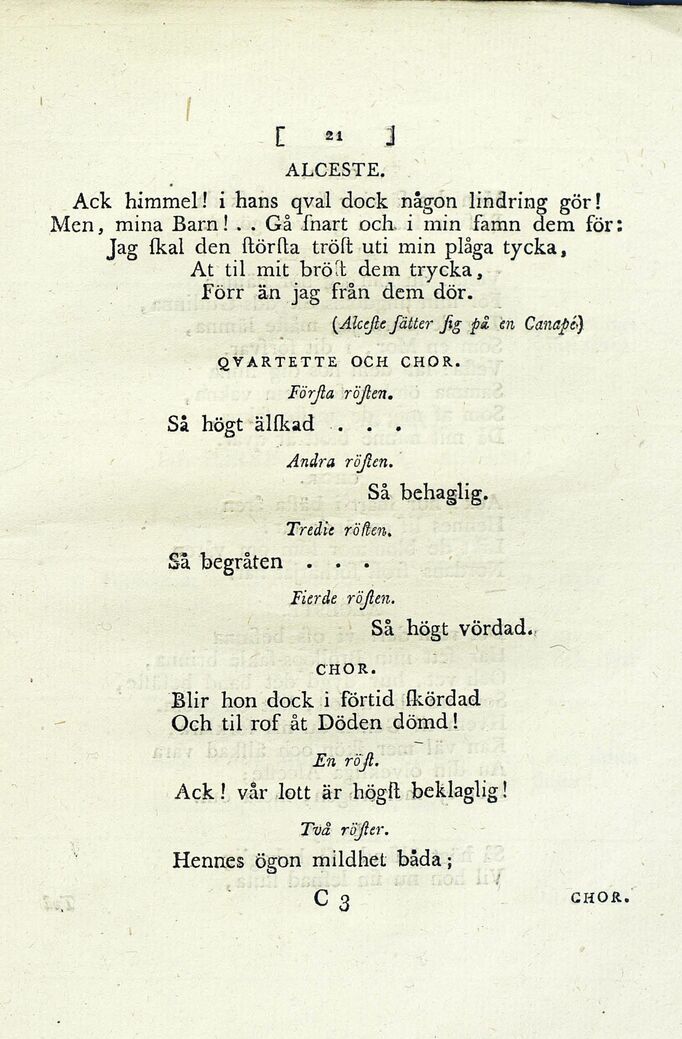 [ 21 ]
ALCESTE.
Ack himmel! i hans qval dock någon lindring gör!
Men, mina Barn! . . Gå ſnart och i min famn dem för:
Jag ſkal den ſtörſta tröſt uti min plåga tycka,
At til mit bröſt dem trycka,
Förr än jag från dem dör.
(Alceſte ſätter ſig på en Canapé)
QVARTETTE OCH CHOR.
Förſta röſten.
Så högt älſkad . . .
Andra röſten.
Så behaglig.
Tredie röſten.
Så begråten . . .
Fierde röſten.
Så högt vördad.
CHOR.
Blir hon dock i förtid ſkördad
Och til rof åt Döden dömd!
En röſt.
Ack! vår lott är högſt beklaglig!
Två röſter.
Hennes ögon mildhet båda;
C 3 CHOR.